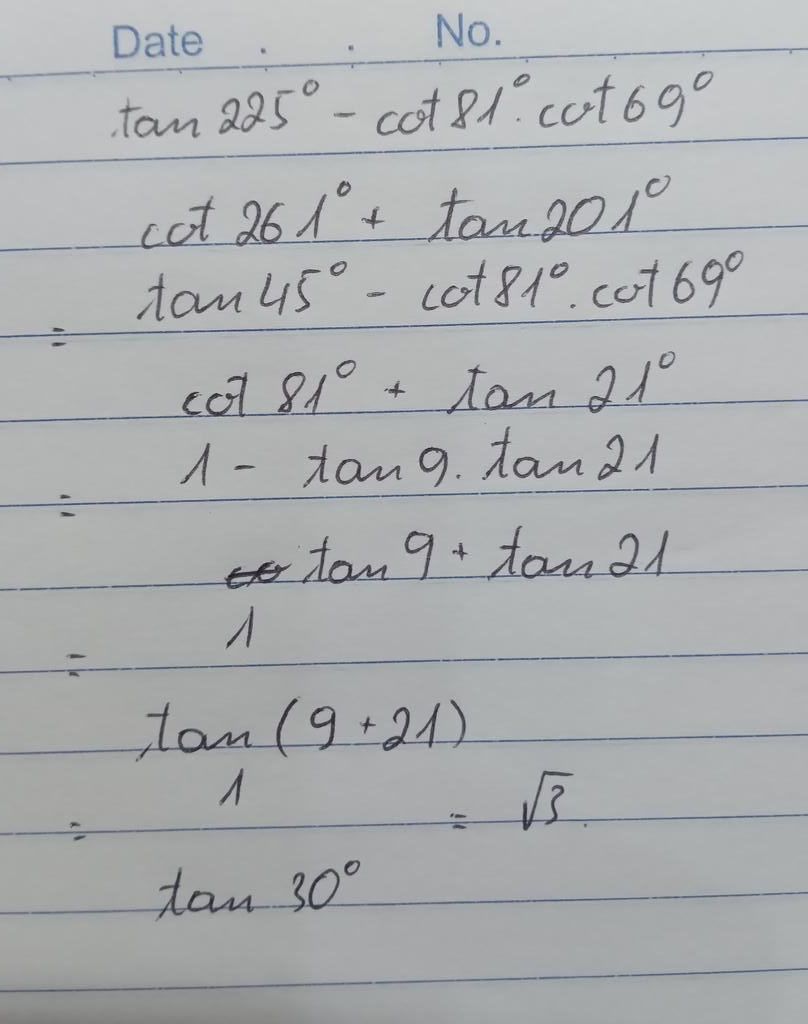 Date . . No.
tan 225° - cot 81° . cot 69°
cot 261° + tan 201°
tan 45° - cot 81° . cot 69°
=
cot 81° + tan 21°
1 - tan 9 . tan 21
=
tan 9 + tan 21
1
=
tan (9 + 21)
1
= = √3 .
tan 30°